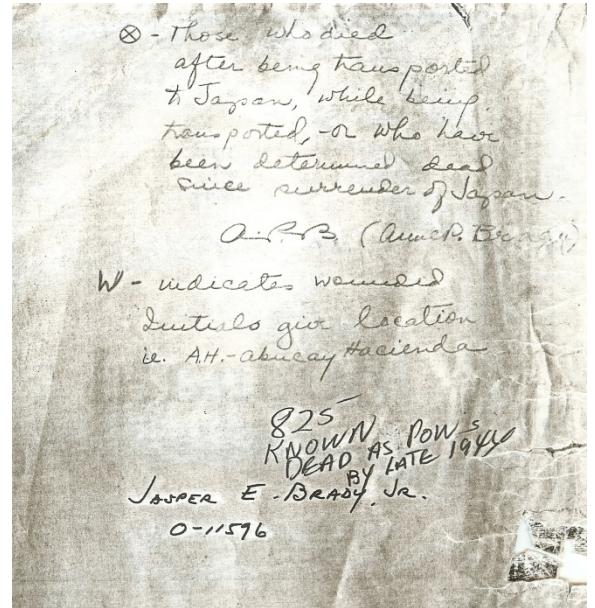 ⊗ - Those who died
after being transported
to Japan, while being
transported, - or who have
been determined dead
since surrender of Japan.
A.P.B. (Anne P. Brady)
W - indicates wounded
Initials give location
ie. A.H. - Abucay Hacienda
825
KNOWN
DEAD AS POWs
BY LATE 1944
JASPER E. BRADY, JR.
O-11596